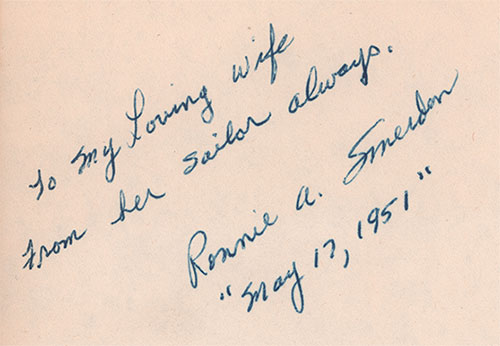 To My Loving Wife
From her sailor always.
Ronnie A. Smerdon
"May 17, 1951"